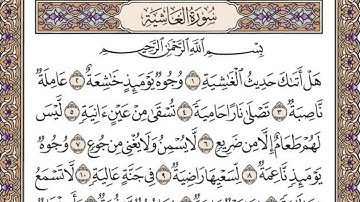 سُورَةُ الغَاشِيَةِ
بِسْمِ اللَّهِ الرَّحْمَٰنِ الرَّحِيمِ
هَلْ أَتَىٰكَ حَدِيثُ ٱلْغَٰشِيَةِ ١ وُجُوهٌ يَوْمَئِذٍ خَٰشِعَةٌ ٢ عَامِلَةٌ
نَّاصِبَةٌ ٣ تَصْلَىٰ نَارًا حَامِيَةً ٤ تُسْقَىٰ مِنْ عَيْنٍ ءَانِيَةٍ ٥ لَّيْسَ
لَهُمْ طَعَامٌ إِلَّا مِن ضَرِيعٍ ٦ لَّا يُسْمِنُ وَلَا يُغْنِي مِن جُوعٍ ٧ وُجُوهٌ
يَوْمَئِذٍ نَّاعِمَةٌ ٨ لِّسَعْيِهَا رَاضِيَةٌ ٩ فِي جَنَّةٍ عَالِيَةٍ ١٠ لَّا تَسْمَعُ